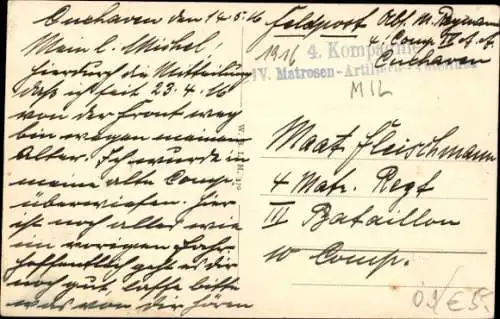 Cuxhaven den 14.5.16
Mein l. Michel!
Hierdurch die Mitteilung
daß ich seit 23.4.16
von der Front weg
bin wegen meinem
Alter. Ich wurde in
meine alte Comp.
überwiesen. Hier
ist noch alles wie
im vorigen Jahr
hoffentlich geht es dir
noch gut, lasse bitte
was von dir hören
Feldpost Obt. M.
4. Comp IV
Cuxhaven
1916
4. Kompagnie
IV. Matrosen-Artillerie
MIL
Maat Fleischmann
4 Matr. Regt
III Bataillon
10 Comp.
€5.